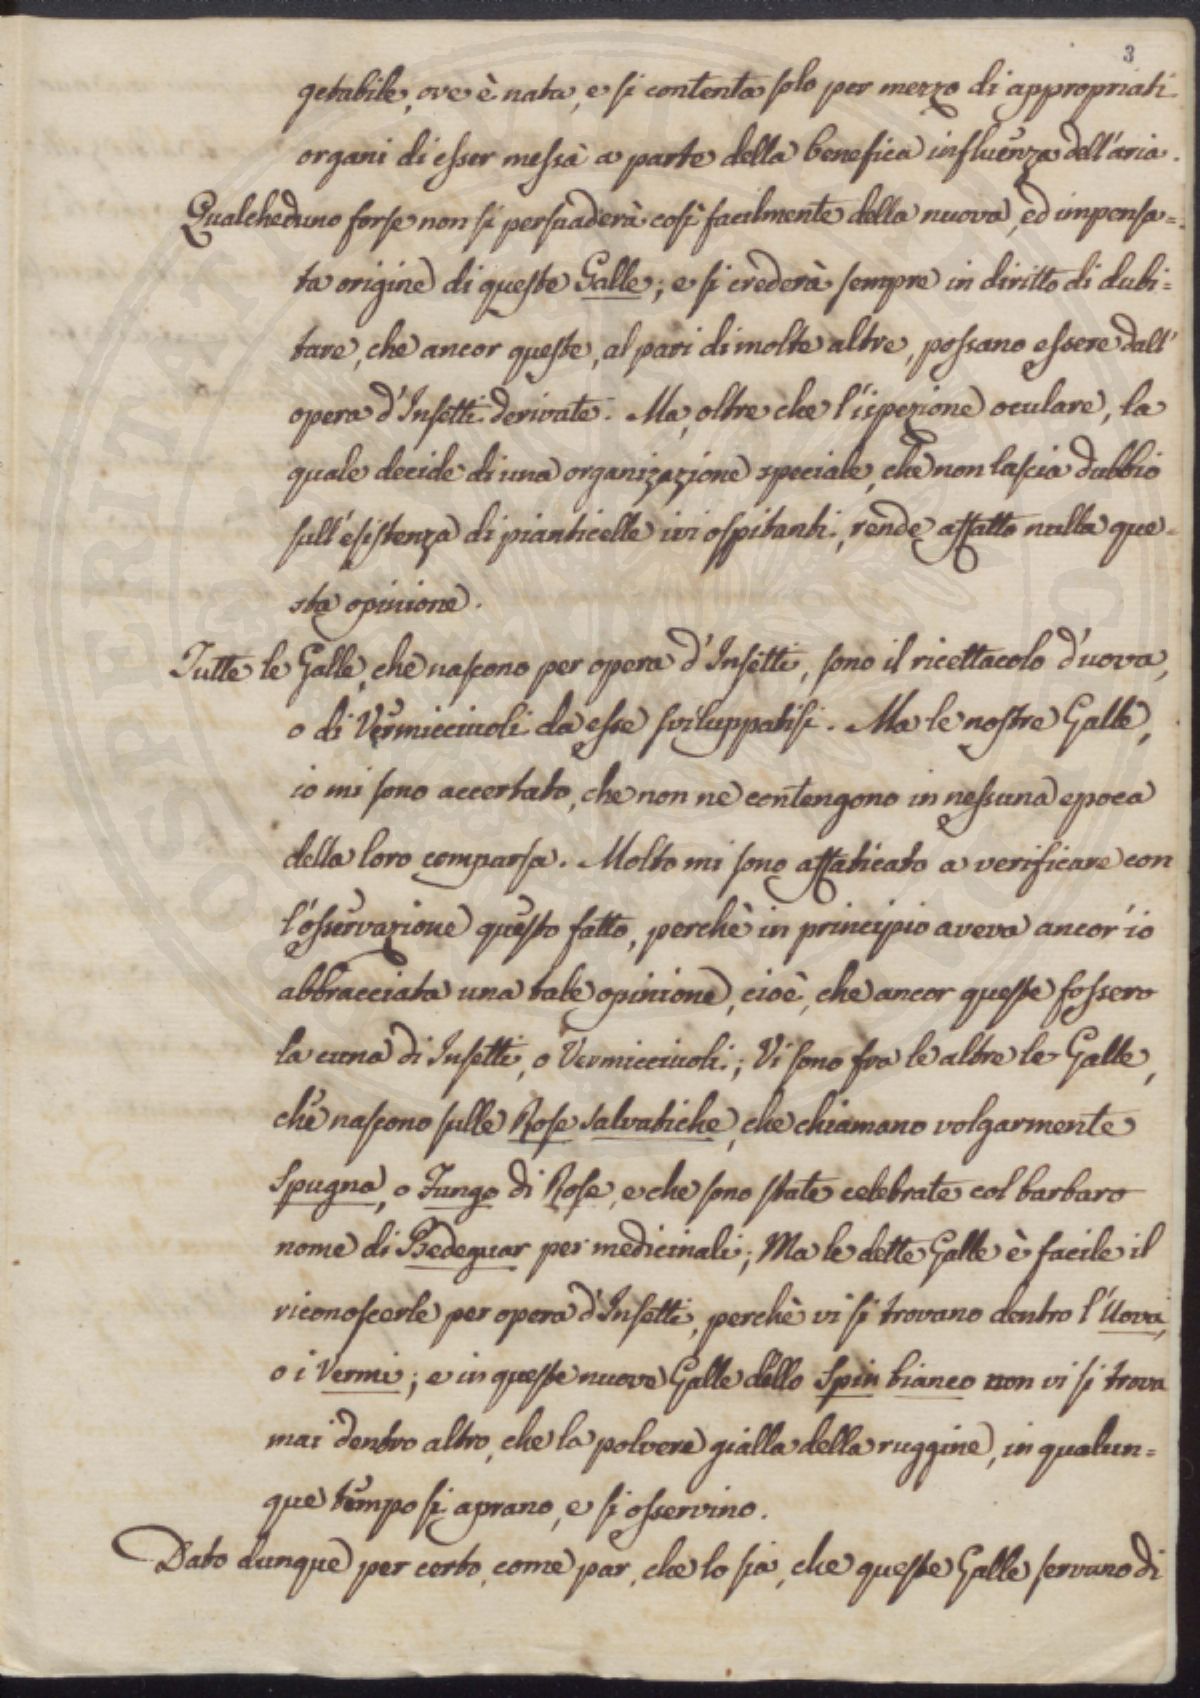 3
getabile, ove è nata, e si contenta solo per mezzo di appropriati
organi di esser messa a parte della benefica influenza dell'aria.
Qualcheduno forse non si persuaderà così facilmente della nuova, ed impensa=
ta origine di queste Galle; e si crederà sempre in diritto di dubi=
tare, che ancor queste, al pari di molte altre, possano essere dall'
opera d'Insetti derivate. Ma, oltre che l'ispezione oculare, la
quale decide di una organizazione speciale, che non lascia dubbio
sull'esistenza di pianticelle ivi ospitanti, rende affatto nulla que=
sta opinione.
Tutte le Galle, che nascono per opera d'Insetti, sono il ricettacolo d'uova,
o di Vermicciuoli da esse sviluppatisi. Ma le nostre Galle,
io mi sono accertato, che non ne contengono in nessuna epoca
della loro comparsa. Molto mi sono affaticato a verificare con
l'osservazione questo fatto, perchè in principio aveva ancor'io
abbracciata una tale opinione, cioè, che ancor queste fossero
la cuna di Insetti, o Vermicciuoli; Vi sono fra le altre le Galle,
che nascono sulle Rose salvatiche, che chiamano volgarmente
Spugna, o Fungo di Rose, e che sono state celebrate col barbaro
nome di Bedeguar per medicinali; Ma le dette Galle è facile il
riconoscerle per opera d'Insetti, perchè vi si trovano dentro l'Uova,
o i Vermi; e in queste nuove Galle dello Spin bianco non vi si trova
mai dentro altro, che la polvere gialla della ruggine, in qualun=
que tempo si aprano, e si osservino.
Dato dunque per certo, come par, che lo sia, che queste Galle servano di